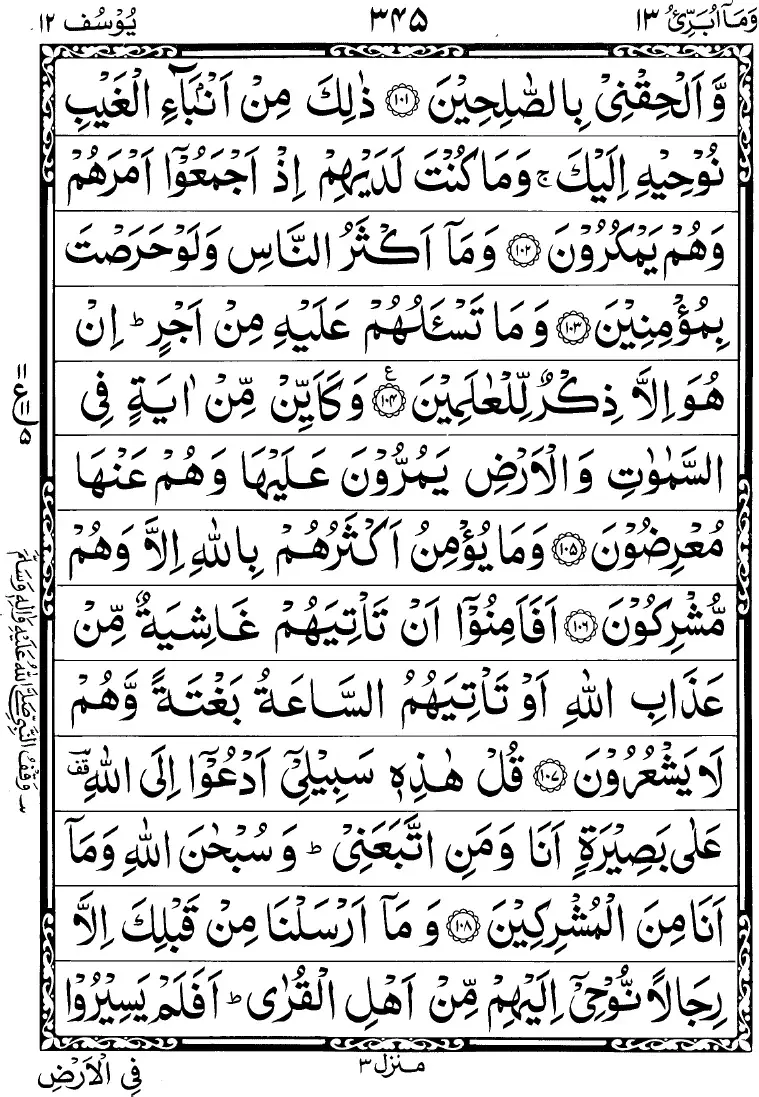 وَمَاۤ اُبَرِّئُ ١٣
٣٤٥
يُوْسُف ١٢
وَّاَلْحِقْنِیْ بِالصّٰلِحِیْنَ ﴿۱۰۱﴾ ذٰلِكَ مِنْ اَنْۢبَآءِ الْغَیْبِ
نُوْحِیْهِ اِلَیْكَ ۚ وَمَا كُنْتَ لَدَیْهِمْ اِذْ اَجْمَعُوْۤا اَمْرَهُمْ
وَهُمْ یَمْكُرُوْنَ ﴿۱۰۲﴾ وَمَاۤ اَكْثَرُ النَّاسِ وَلَوْ حَرَصْتَ
بِمُؤْمِنِیْنَ ﴿۱۰۳﴾ وَمَا تَسْـَٔلُهُمْ عَلَیْهِ مِنْ اَجْرٍ ؕ اِنْ
هُوَ اِلَّا ذِكْرٌ لِّلْعٰلَمِیْنَ ﴿۱۰۴﴾ ع وَكَاَیِّنْ مِّنْ اٰیَةٍ فِی
السَّمٰوٰتِ وَالْاَرْضِ یَمُرُّوْنَ عَلَیْهَا وَهُمْ عَنْهَا
مُعْرِضُوْنَ ﴿۱۰۵﴾ وَمَا یُؤْمِنُ اَكْثَرُهُمْ بِاللّٰهِ اِلَّا وَهُمْ
مُّشْرِكُوْنَ ﴿۱۰۶﴾ اَفَاَمِنُوْۤا اَنْ تَاْتِیَهُمْ غَاشِیَةٌ مِّنْ
عَذَابِ اللّٰهِ اَوْ تَاْتِیَهُمُ السَّاعَةُ بَغْتَةً وَّهُمْ
لَا یَشْعُرُوْنَ ﴿۱۰۷﴾ قُلْ هٰذِهٖ سَبِیْلِیْۤ اَدْعُوْۤا اِلَی اللّٰهِ قف
عَلٰی بَصِیْرَةٍ اَنَا وَمَنِ اتَّبَعَنِیْ ؕ وَسُبْحٰنَ اللّٰهِ وَمَاۤ
اَنَا مِنَ الْمُشْرِكِیْنَ ﴿۱۰۸﴾ وَمَاۤ اَرْسَلْنَا مِنْ قَبْلِكَ اِلَّا
رِجَالًا نُّوْحِیْۤ اِلَیْهِمْ مِّنْ اَهْلِ الْقُرٰی ؕ اَفَلَمْ یَسِیْرُوْا
منزل ٣
فِی الْاَرْضِ
ع ۵
وَقْفُ النَّبِیِّ صَلَّی اللّٰهُ عَلَیْهِ وَاٰلِهٖ وَسَلَّمَ